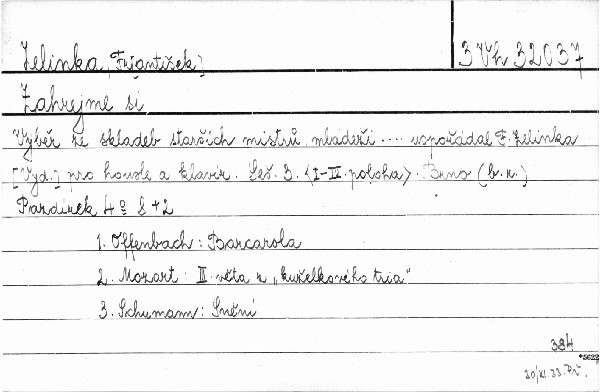 Jelinka, Fr[antišek]
3 Vh 32037
Zahrejme si
Výběr ze skladeb starších mistrů mládeži .... uspořádal F. Jelinka
[Vyd.] pro housle a klavír. Seš. 3. <I-IV. poloha>. Brno (b. r.)
Pazdírek 4° 8 + 2
1. Offenbach: Barcarola
2. Mozart: II. věta z „kuželkového tria"
3. Schumann: Snění
384
*5622
30/XI.33.Př.